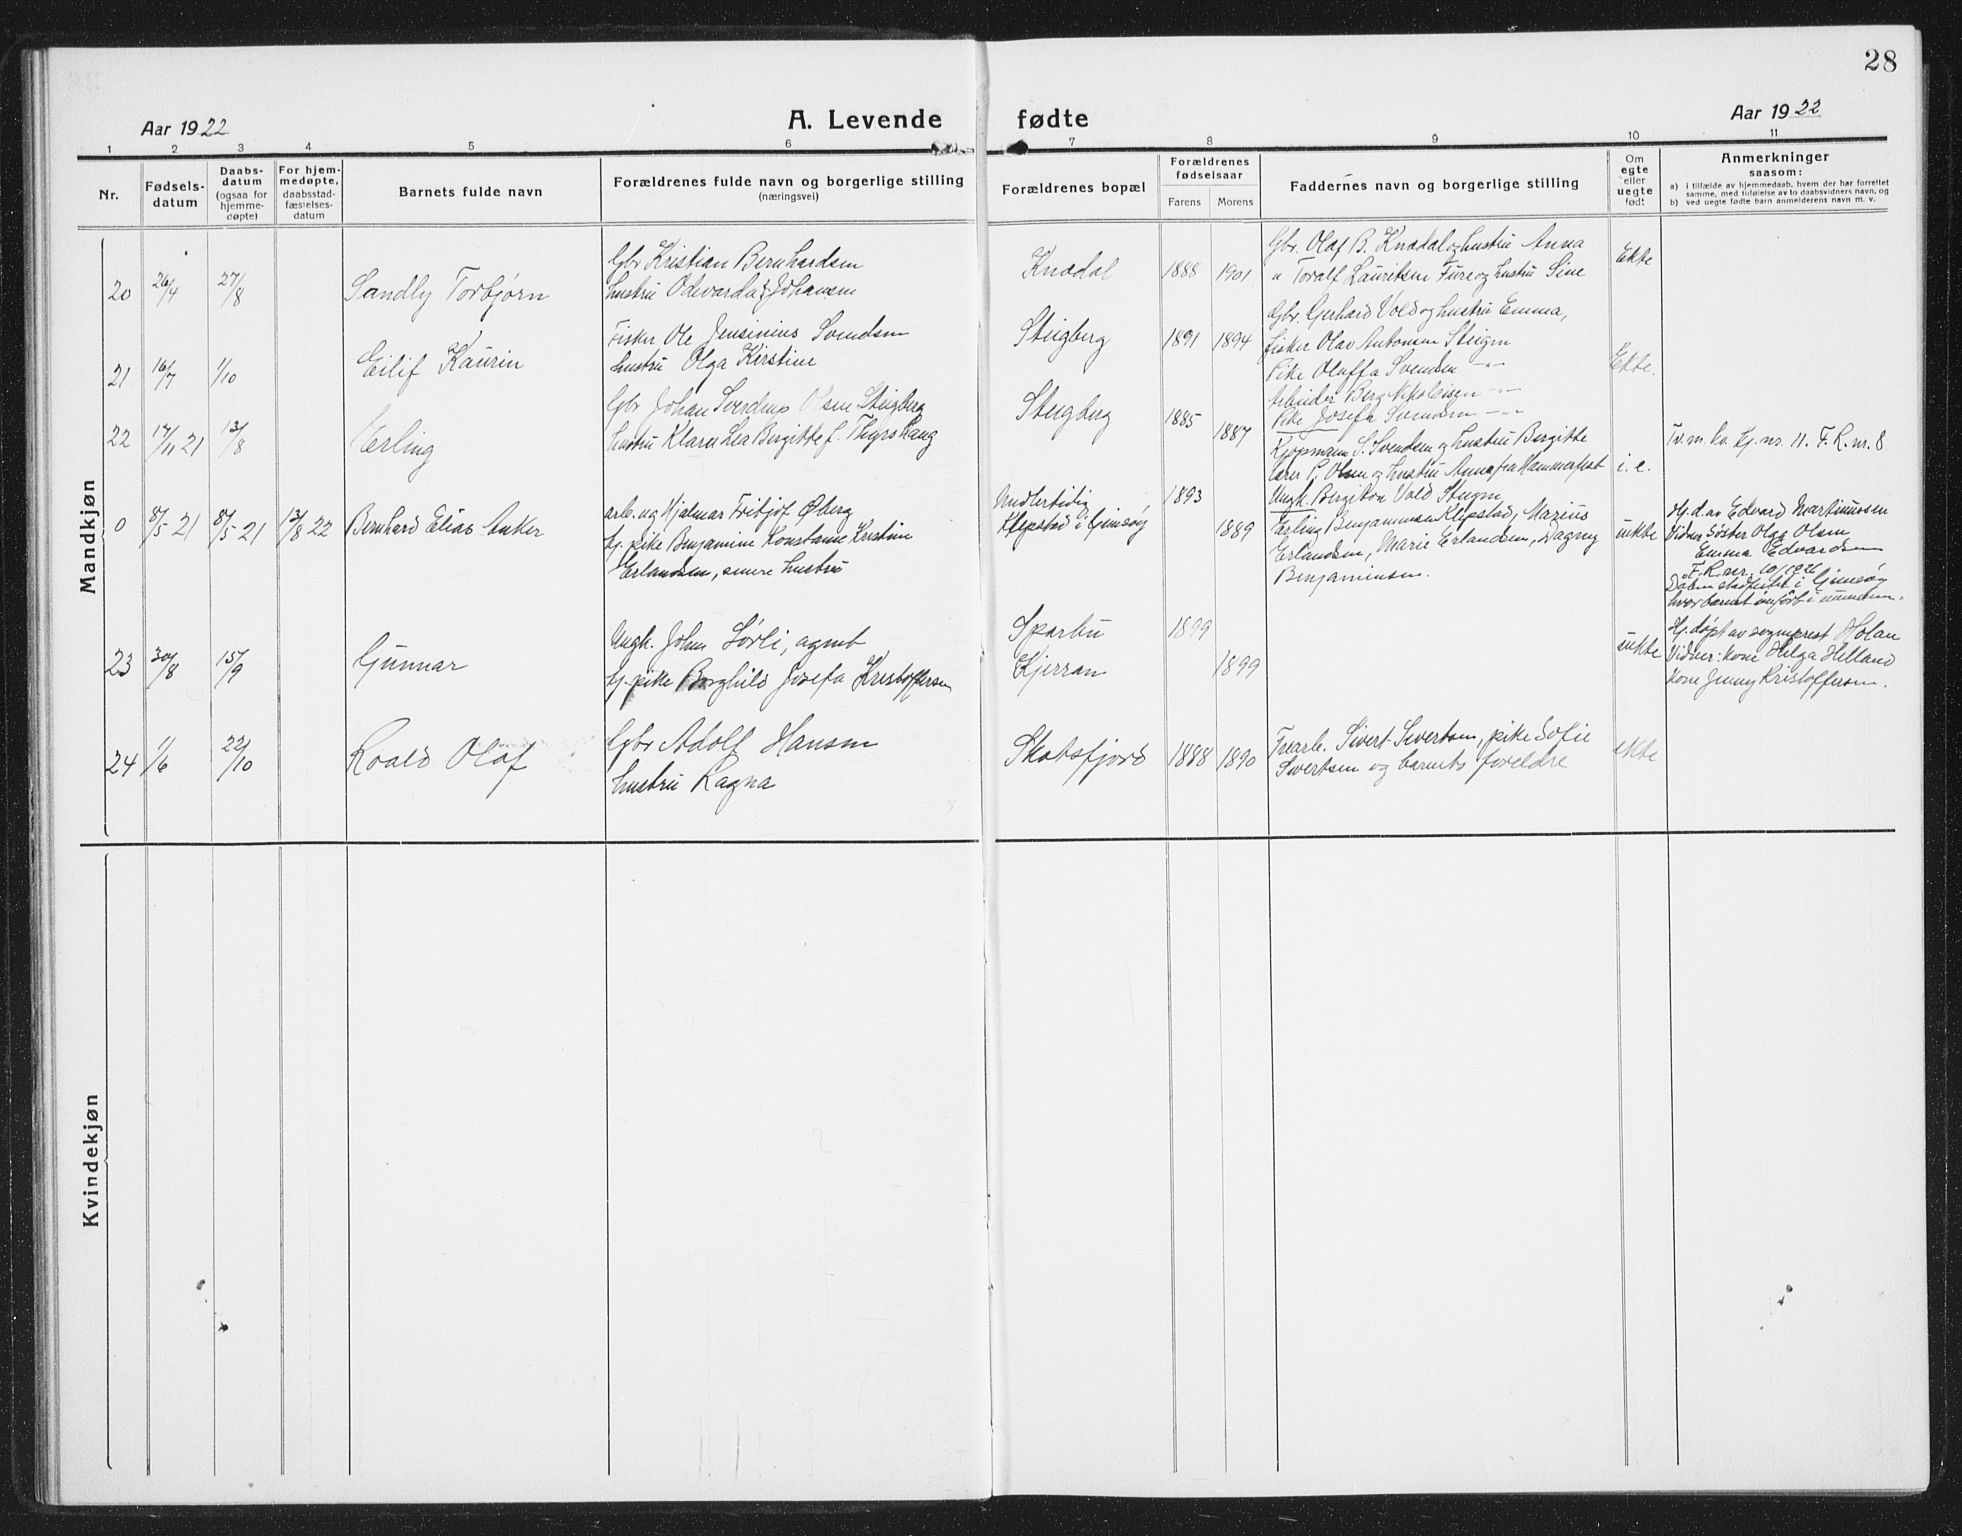 28
Aar 1922
A. Levende fødte
Aar 1922
1 2 3 4 5 6 7 8 9 10 11
Nr.
Fødsels-
datum
Daabs-
datum
(ogsaa for
hjemme-
døpte)
For hjem-
medøpte,
daabsstad-
fæstelses-
datum
Barnets fulde navn
Forældrenes fulde navn og borgerlige stilling
(næringsvei)
Forældrenes bopæl
Forældrenes
fødselsaar
Farens Morens
Faddernes navn og borgerlige stilling
Om
egte
eller
uegte
født
Anmerkninger
saasom:
a) i tilfælde av hjemmedaab, hvem der har forrettet
samme, med tilføielse av to daabsvidners navn, og
b) ved uegte fødte barn anmelderens navn m. v.
Mandkjøn
20 26/4 27/8 Sandly Torbjørn
Gbr Kristian Bernhardsen
hustru Odevarda f. Johansen
Knædal 1888 1901
Gbr. Olaf B. Knædal og hustru Anna
" Toralf Lauritsen Fure og hustru Sine
Ekte
21 16/7 1/10 Eilif Kaurin
Fisker Ole Jensinius Svendsen
hustru Olga Kirstine
Steigberg 1891 1894
Gbr. Gerhard Vold og hustru Emma,
fisker Olav Antonsen Steigen
Pike Oluffa Svendsen -"-
Arbeider Berg Nikolaisen -"-
Pike Josefa Svendsen -"-
Ekte.
22 17/11 21 13/8 Erling
Gbr Johan Sverdrup Olsen Steigberg
hustru Klara Lea Bergitte f. Thyrshaug
Steigberg 1885 1887
Kjøpmann S. Svendsen og hustru Bergitte
lærer P. Olsen og hustru Anna fra Hammerfest
Ungk. Bergiton Vold Steigen
i. e.
Tv. m. kv. kj. nr. 11. F. R. nr. 8
0 8/5 21 8/5 21 13/8 22 Bernhard Elias Anker
arb. ug Hjalmar Fritjof Øberg
hj. pike Benjamine Konstanse Kristine
Erlandsen, senere hustru
Midlertidig
Klepstad i Gimsøy
1893 1889
Erling Benjaminsen Klepstad, Marius
Erlandsen, Marie Erlandsen, Dagny
Benjaminsen.
uekte
Hj. d. av Edvard Martinussen
Vidner: Søster Olga Olsen
Emma Edvardsen
F. R. nr. 10/1921
Daaben stadfestet i Gimsøy
hvor barnet innført i ministb.
23 30/8 15/9 Gunnar
Ungk. John Sørli, agent
hj. pike Borghild Josefa Kristoffersen
Sparbu 1899
Kjerran 1899
uekte
Hj. døpt av sogneprest Holan
Vidner: kone Helga Helland
kone Jenny Kristoffersen.
24 1/6 22/10 Roald Olaf
Gbr Adolf Hansen
hustru Ragna
Skotsfjord 1888 1890
Trearb. Sivert Sivertsen, pike Sofie
Sivertsen og barnets foreldre
ekte
Kvindekjøn